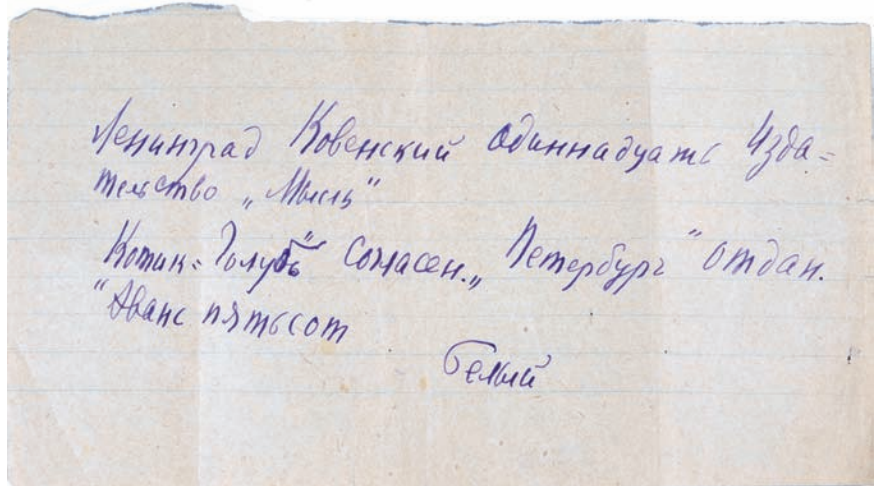 Ленинград Ковенский одиннадцать Изда=
тельство „Мысль"
Котик=Голубь" Согласен. „Петербург" отдан.
"Аванс пятьсот
Белый